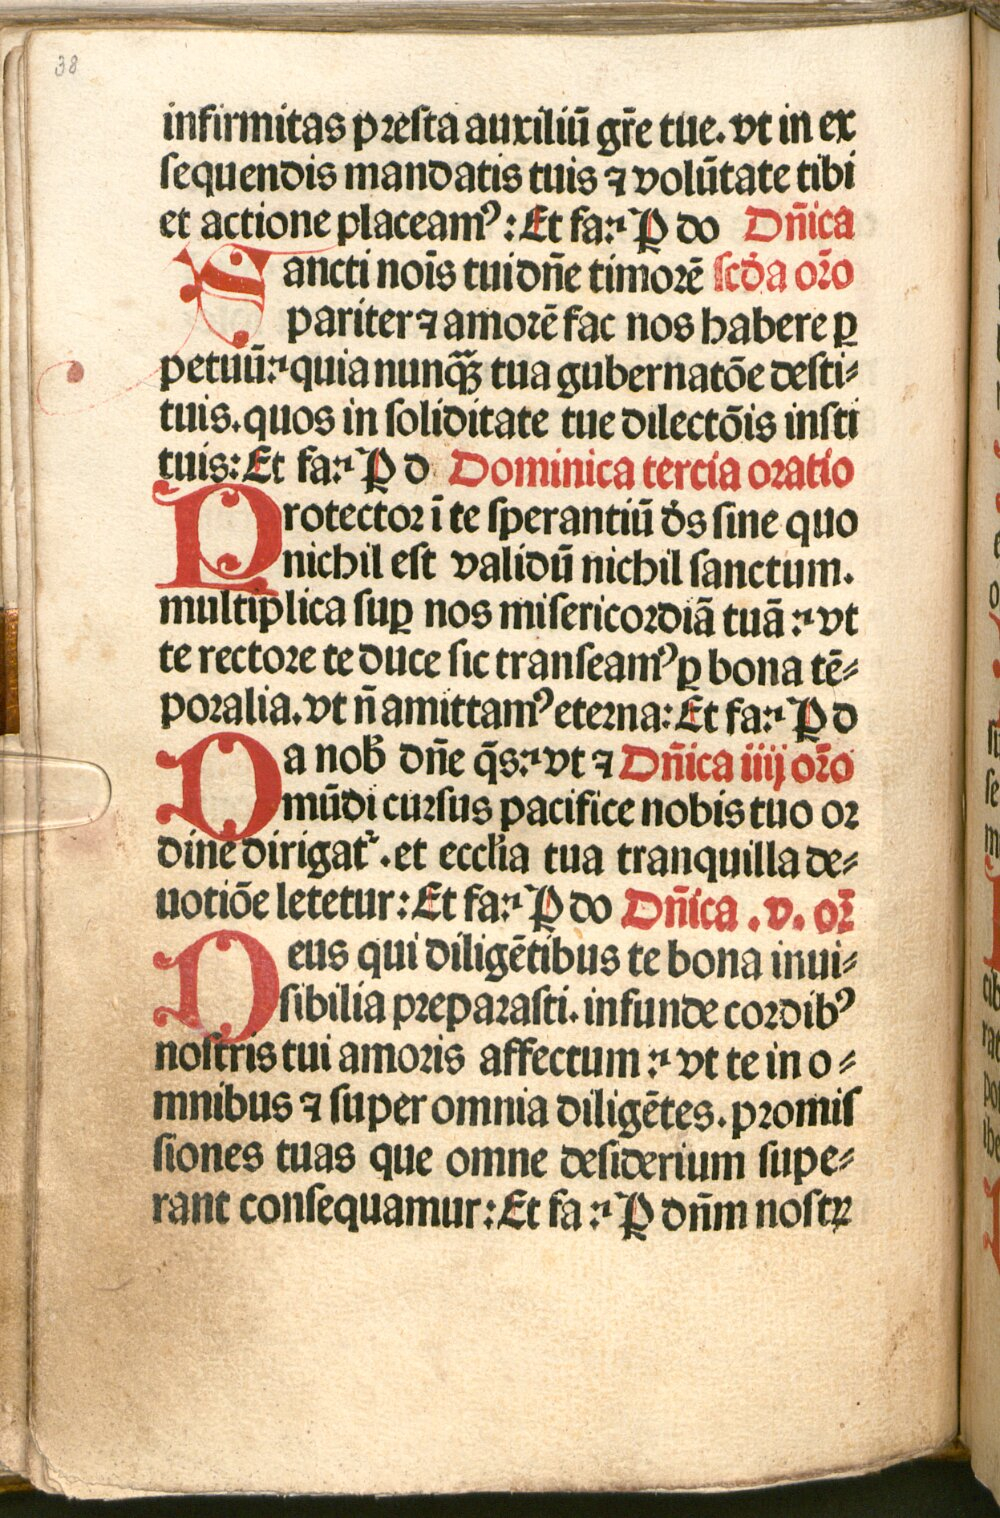 38
infirmitas presta auxiliū gr̄e tue. vt in ex
sequendis mandatis tuis ⁊ volūtate tibi
et actione placeamꝰ: Et fa: P do Dn̄ica
Sancti noīs tui dn̄e timorē scd̄a or̄o
pariter ⁊ amorē fac nos habere ꝑ
petuū: quia nunqꝫ tua gubernatōe desti⸗
tuis. quos in soliditate tue dilectōis insti
tuis: Et fa: P d Dominica tercia oratio
Protector ī te sperantiū d̄s sine quo
nichil est validū nichil sanctum.
multiplica suꝑ nos misericordiā tuā: vt
te rectore te duce sic transeamꝰ ꝑ bona tē⸗
poralia. vt n̄ amittamꝰ eterna: Et fa: P d
Da nob̄ dn̄e q̄s: vt ⁊ Dn̄ica iiij or̄o
mūdi cursus pacifice nobis tuo or
dine dirigat᷑. et eccl̄ia tua tranquilla de⸗
uotiōe letetur: Et fa: P do Dn̄ica .v. or̄
Deus qui diligētibus te bona inui⸗
sibilia preparasti. infunde cordibꝰ
nostris tui amoris affectum: vt te in o⸗
mnibus ⁊ super omnia diligētes. promis
siones tuas que omne desiderium supe⸗
rant consequamur: Et fa: P dn̄m nostꝝ